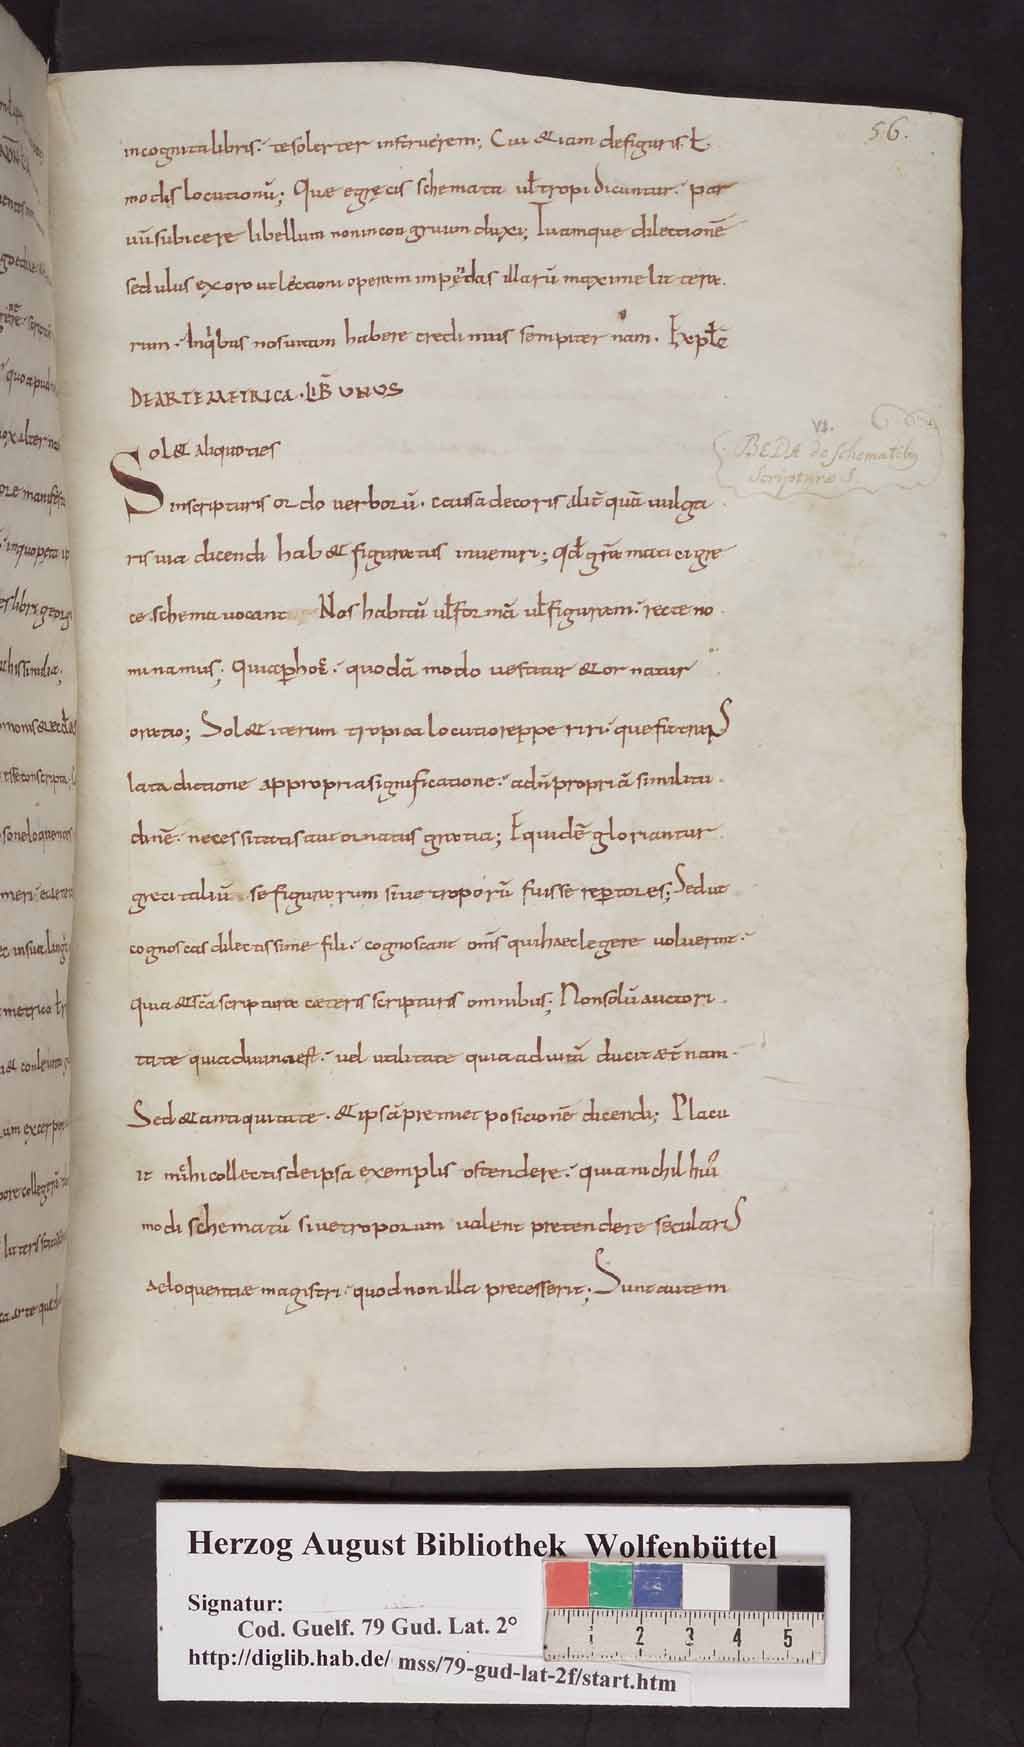 56.
incognita libris. te solerter instruerem; Cui & iam defiguris. ł
modis locutionū; Que egręcis schemata uł tropi dicuntur. par
uū subicere libellum non incongruum duxi; Tuamque dilectionē
sedulus exoro ut lectioni operam impendas illarū maxime littera
rum. Inqibus nos uitam habere credimus sempiternam. Explc̄
DE ARTE METRICA. LIB̄ UNUS
VI.
BEDA de Schematibꝫ
Scripturæ S.
Sol& aliquoties
inscripturis ordo verborū. causa decoris alit̄ quā vulga
ris uia dicendi hab& figuratus inveniri; qđ grāmatici gre
ce schema vocant Nos habitū uł formā uł figuram. recte no
minamus; Quia ꝑ hoc. quodā modo vestitur & ornatur
oratio; Sol& iterum tropica locutio repperiri. que fit trans
lata dictione appropria significatione. ad n̄ propriā similitu
dinē. necessitatis aut ornatus gratia; Equidē gloriantur
greci taliū se figurarum siue troporū fuisse reꝑtores; Sed ut
cognoscas dilectissime fili. cognoscant om̄s qui haec legere voluerint.
quia & sc̄a scriptura ceteris scripturis omnibus; Non solū auctori
tate quia divina est. vel utilitate quia ad uitā ducit æt̄nam.
Sed & antiquitate. & ipsā preminet posicionē dicendi; Placu
it mihi collectis de ipsa exemplis ostendere. quia nichil hui
modi schematū siue troporum valent pretendere seculariS
aeloquentiae magistri. quod non illa precesserit; Sunt autem
Herzog August Bibliothek Wolfenbüttel
Signatur:
Cod. Guelf. 79 Gud. Lat. 2°
http://diglib.hab.de/ mss/79-gud-lat-2f/start.htm
1 2 3 4 5